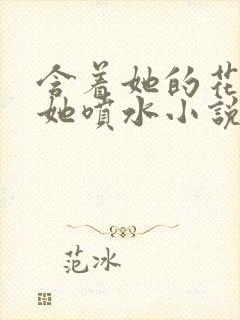 含着她的花
她喷水小说
范冰